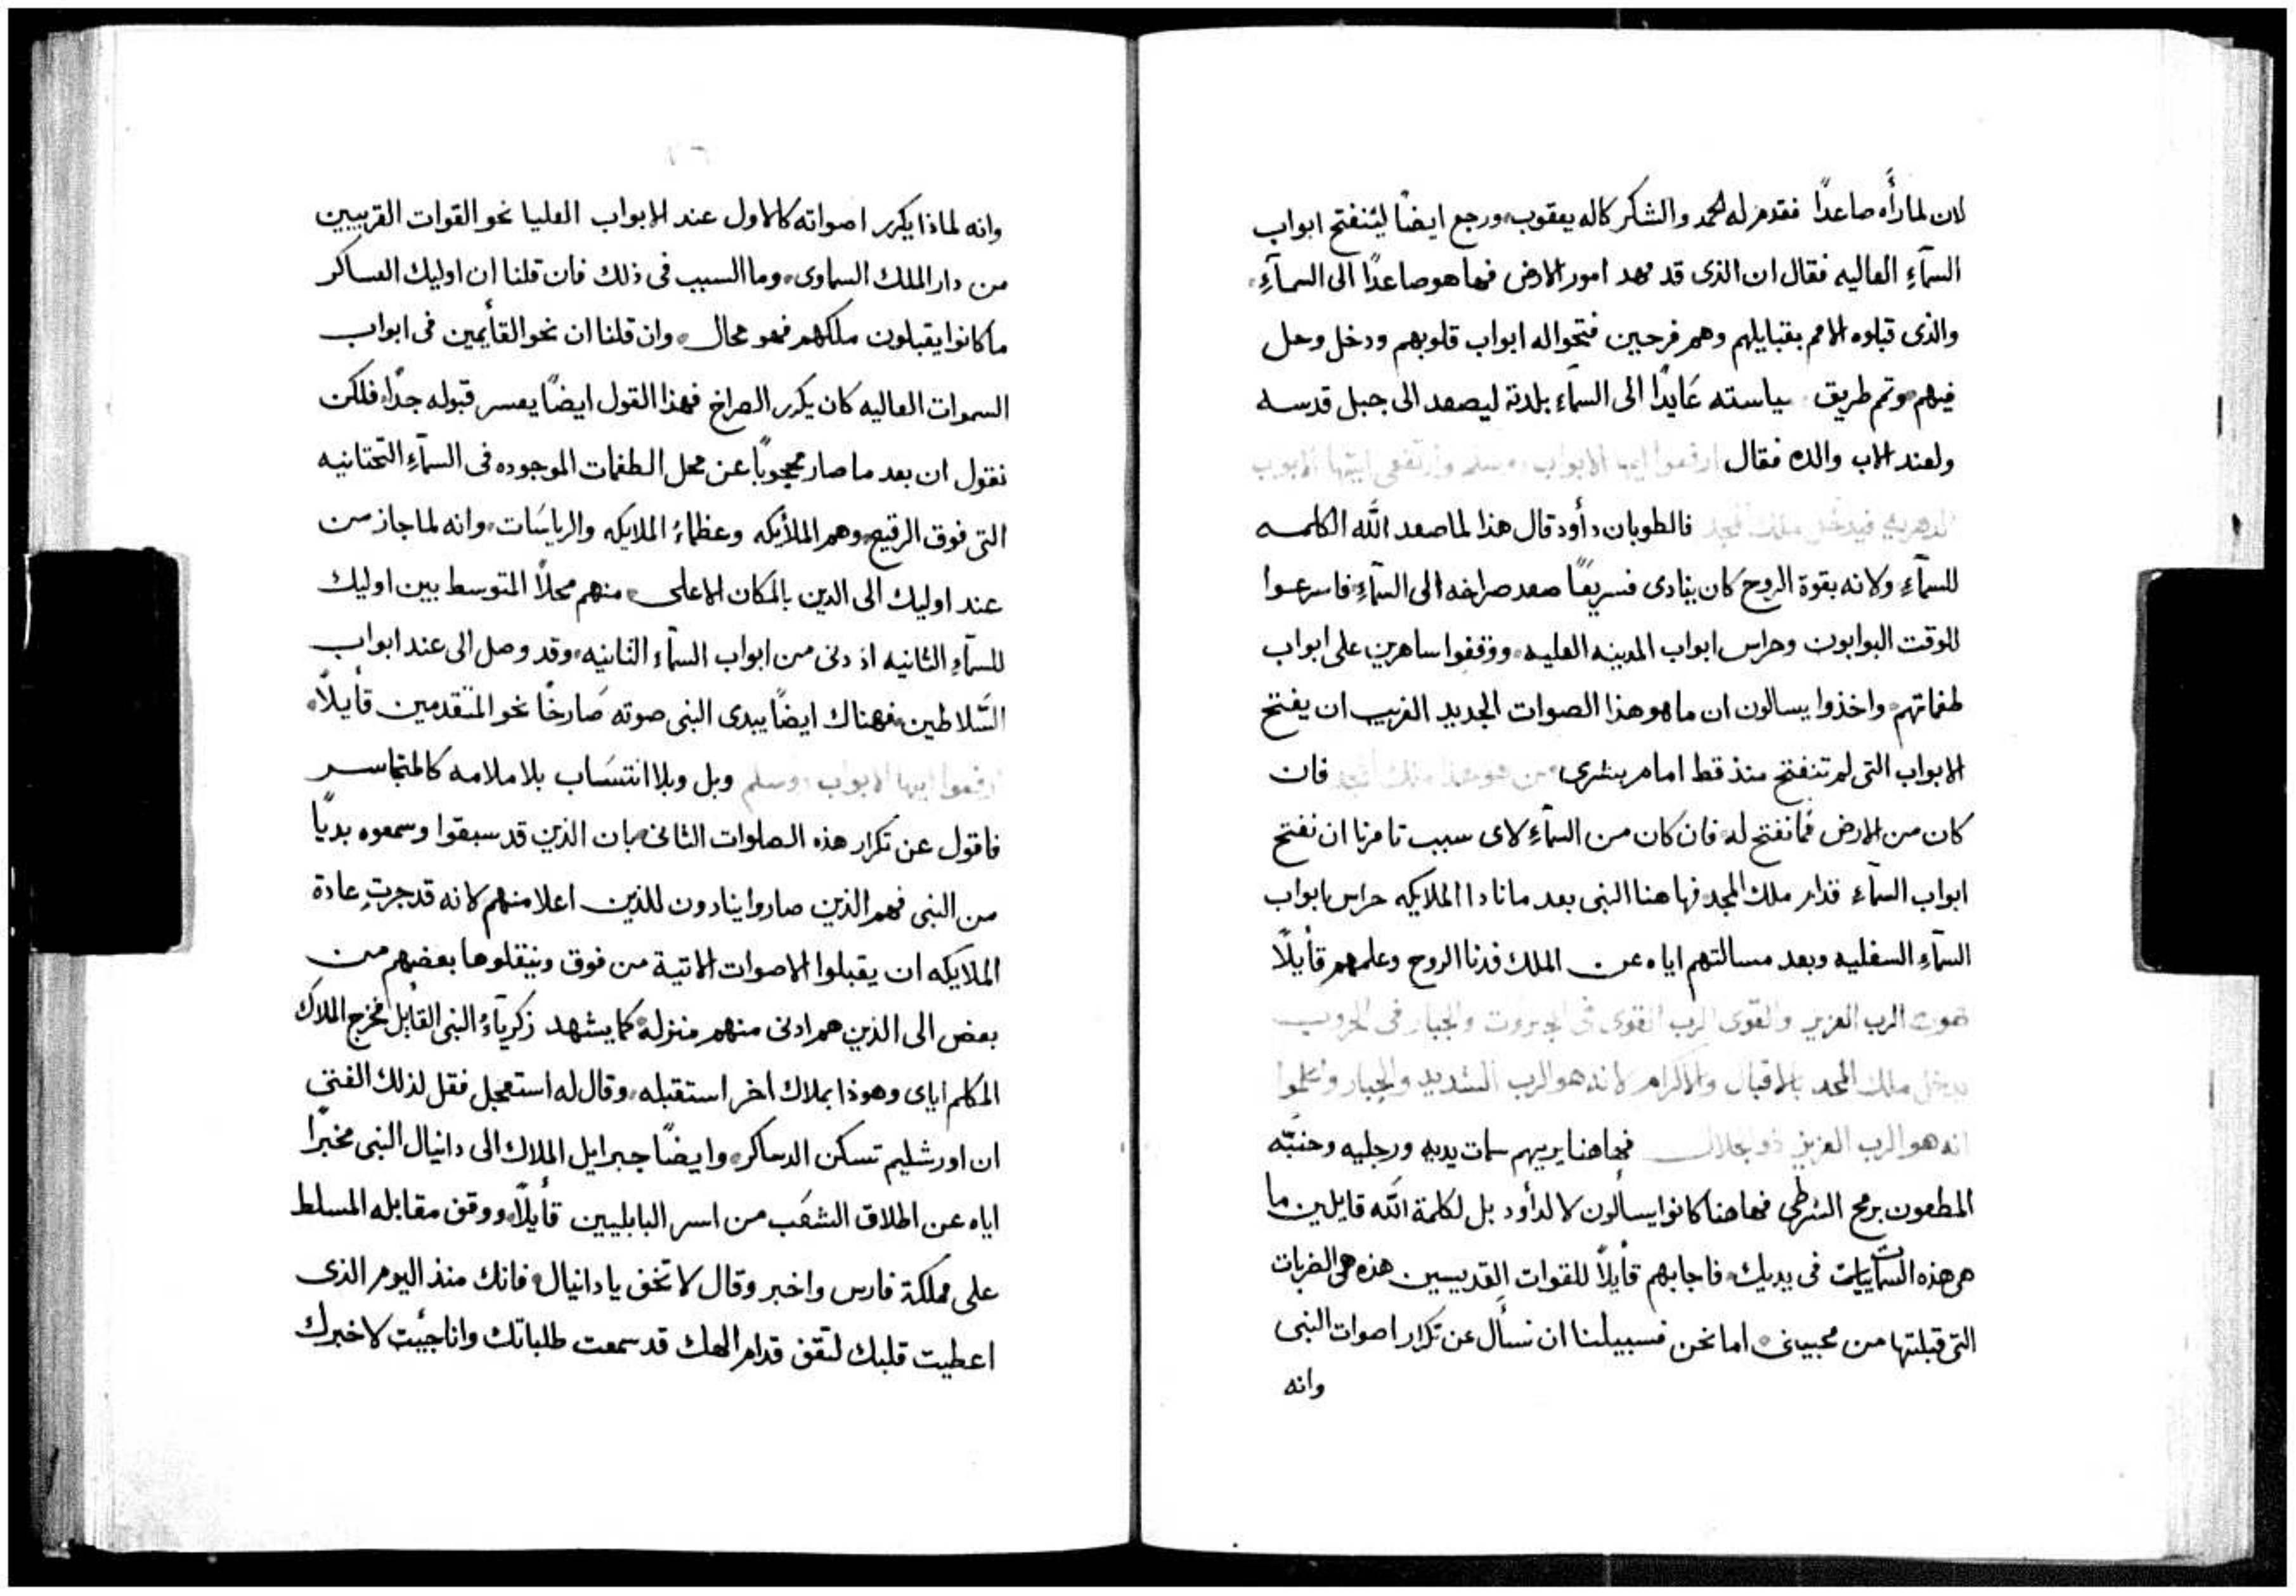 لان لما رأَه صاعدًا فقدم له الحمد والشكر كاله يعقوب ورجع ايضًا ليُنفتح ابواب
السمآءِ العاليه فقال ان الذى قد مهد امور الارض فها هو صاعدًا الى السمآءِ
والذى قبلوه الامم بقبايلهم وهم فرحين فتحوا له ابواب قلوبهم ودخل وحل
فيهم وتمم طريق سياسته عَايدًا الى السمآء بلدته ليصعد الى جبل قدسه
ولعند الاب والده فقال ارفعوا ايها الابواب وارتفعى ايتها الابواب
الدهريه فيدخل ملك المجد فالطوبان دأود قال هذا لما صعد اللّه الكلمه
للسمآءِ ولانه بقوة الروح كان ينادى فسريعًا صعد صراخه الى السمآءِ فاسرعوا
للوقت البوابون وحراس ابواب المدينه العليه ووقفوا ساهرين على ابواب
طغماتهم واخذوا يسالون ان ما هو هذا الصوات الجديد الغريب ان يفتح
الابواب التى لم تنفتح منذ قط امام بشرى من هو هذا ملك المجد فان
كان من الارض فما نفتح له فان كان من السمآءِ لاى سبب تامرنا ان نفتح
ابواب السمآء قدام ملك المجد فها هنا النبى بعد ما نادا الملايكه حراس ابواب
السمآءِ السفليه وبعد مسالتهم اياه عن الملك فدنا الروح وعلمهم قأيلًا
الرب العزيز والقوى الرب القوى فى الجبروت والجبار فى الحروب
يدخل ملك المجد بالاقبال والاكرام لانه هو الرب الشديد والجبار واعلموا
انه هو الرب العزيز ذو الجلال فها هنا يريهم سمات يديه ورجليه وجنبّه
المطعون برمح الشرطى فها هنا كانوا يسألون لا لدأود بل لكلمة اللّه قايلين ما
هى هذه السمات فى يديك فاجابهم قأيلًا للقوات القديسين هذه هى الضربات
التى قبلتها من محبينى اما نحن فسبيلنا ان نسأل عن تكرار اصوات النبى
وانه
وانه لماذا يكرر اصواته كالاول عند الابواب العليا نحو القوات القريبين
من دار الملك السماوى وما السبب فى ذلك فان قلنا ان اوليك العساكر
ما كانوا يقبلون ملكهم فهو محال وان قلنا ان نحو القأيمين فى ابواب
السموات العاليه كان يكرر الصراخ فهذا القول ايضًا يعسر قبوله جدًا فلكن
نقول ان بعد ما صار محجوبًا عن محل الطغمات الموجوده فى السمآءِ التحتانيه
التى فوق الرقيع وهم الملأيكه وعظماءُ الملايكه والرياسَات وانه لما جاز من
عند اوليك الى الدين بالمكان الاعلى منهم محلًا المتوسط بين اوليك
للسمآءِ الثانيه اذ دنى من ابواب السمآء الثانيه وقد وصل الى عند ابواب
السَّلاطين فهناك ايضًا يبدى النبى صوته صَارخًا نحو المتقدمين قأيلًا
ارفعوا ايها الابواب وبل وبلا انتسَاب بلا ملامه كالمتجاسر
فاقول عن تكرار هذه الصلوات الثانى بان الذين قد سبقوا وسمعوه بديًا
من النبى فهم الذين صاروا ينادون للذين اعلا منهم لانه قد جرت عادة
الملايكه ان يقبلوا الاصوات الاتية من فوق وينقلوها بعضهم من
بعض الى الذين هم ادنى منهم منزله كما يشهد زكريآءُ النبى القأيل فخرج الملاك
المكلم اياى وهوذا بملاك اخر استقبله وقال له استعجل فقل لذلك الفتى
ان اورشليم تسكن الدساكر وايضًا جبرايل الملاك الى دانيال النبى مخبرًا
اياه عن اطلاق الشعَب من اسر البابليين قأيلًا ووقف مقابله المسلط
على مملكة فارس واخبر وقال لا تخف يا دانيال فانك منذ اليوم الذى
اعطيت قلبك لتقف قدام الهك قد سمعت طلباتك وانا جيُت لاخبرك